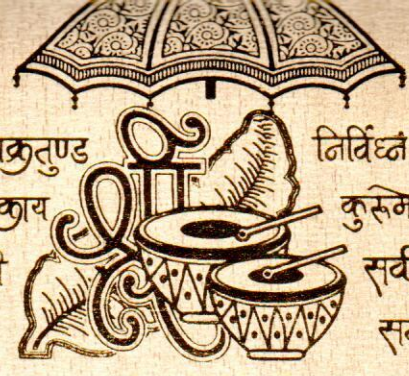 क्रतुण्ड
काय
श्री
निर्विघ्नं
कुरूमे